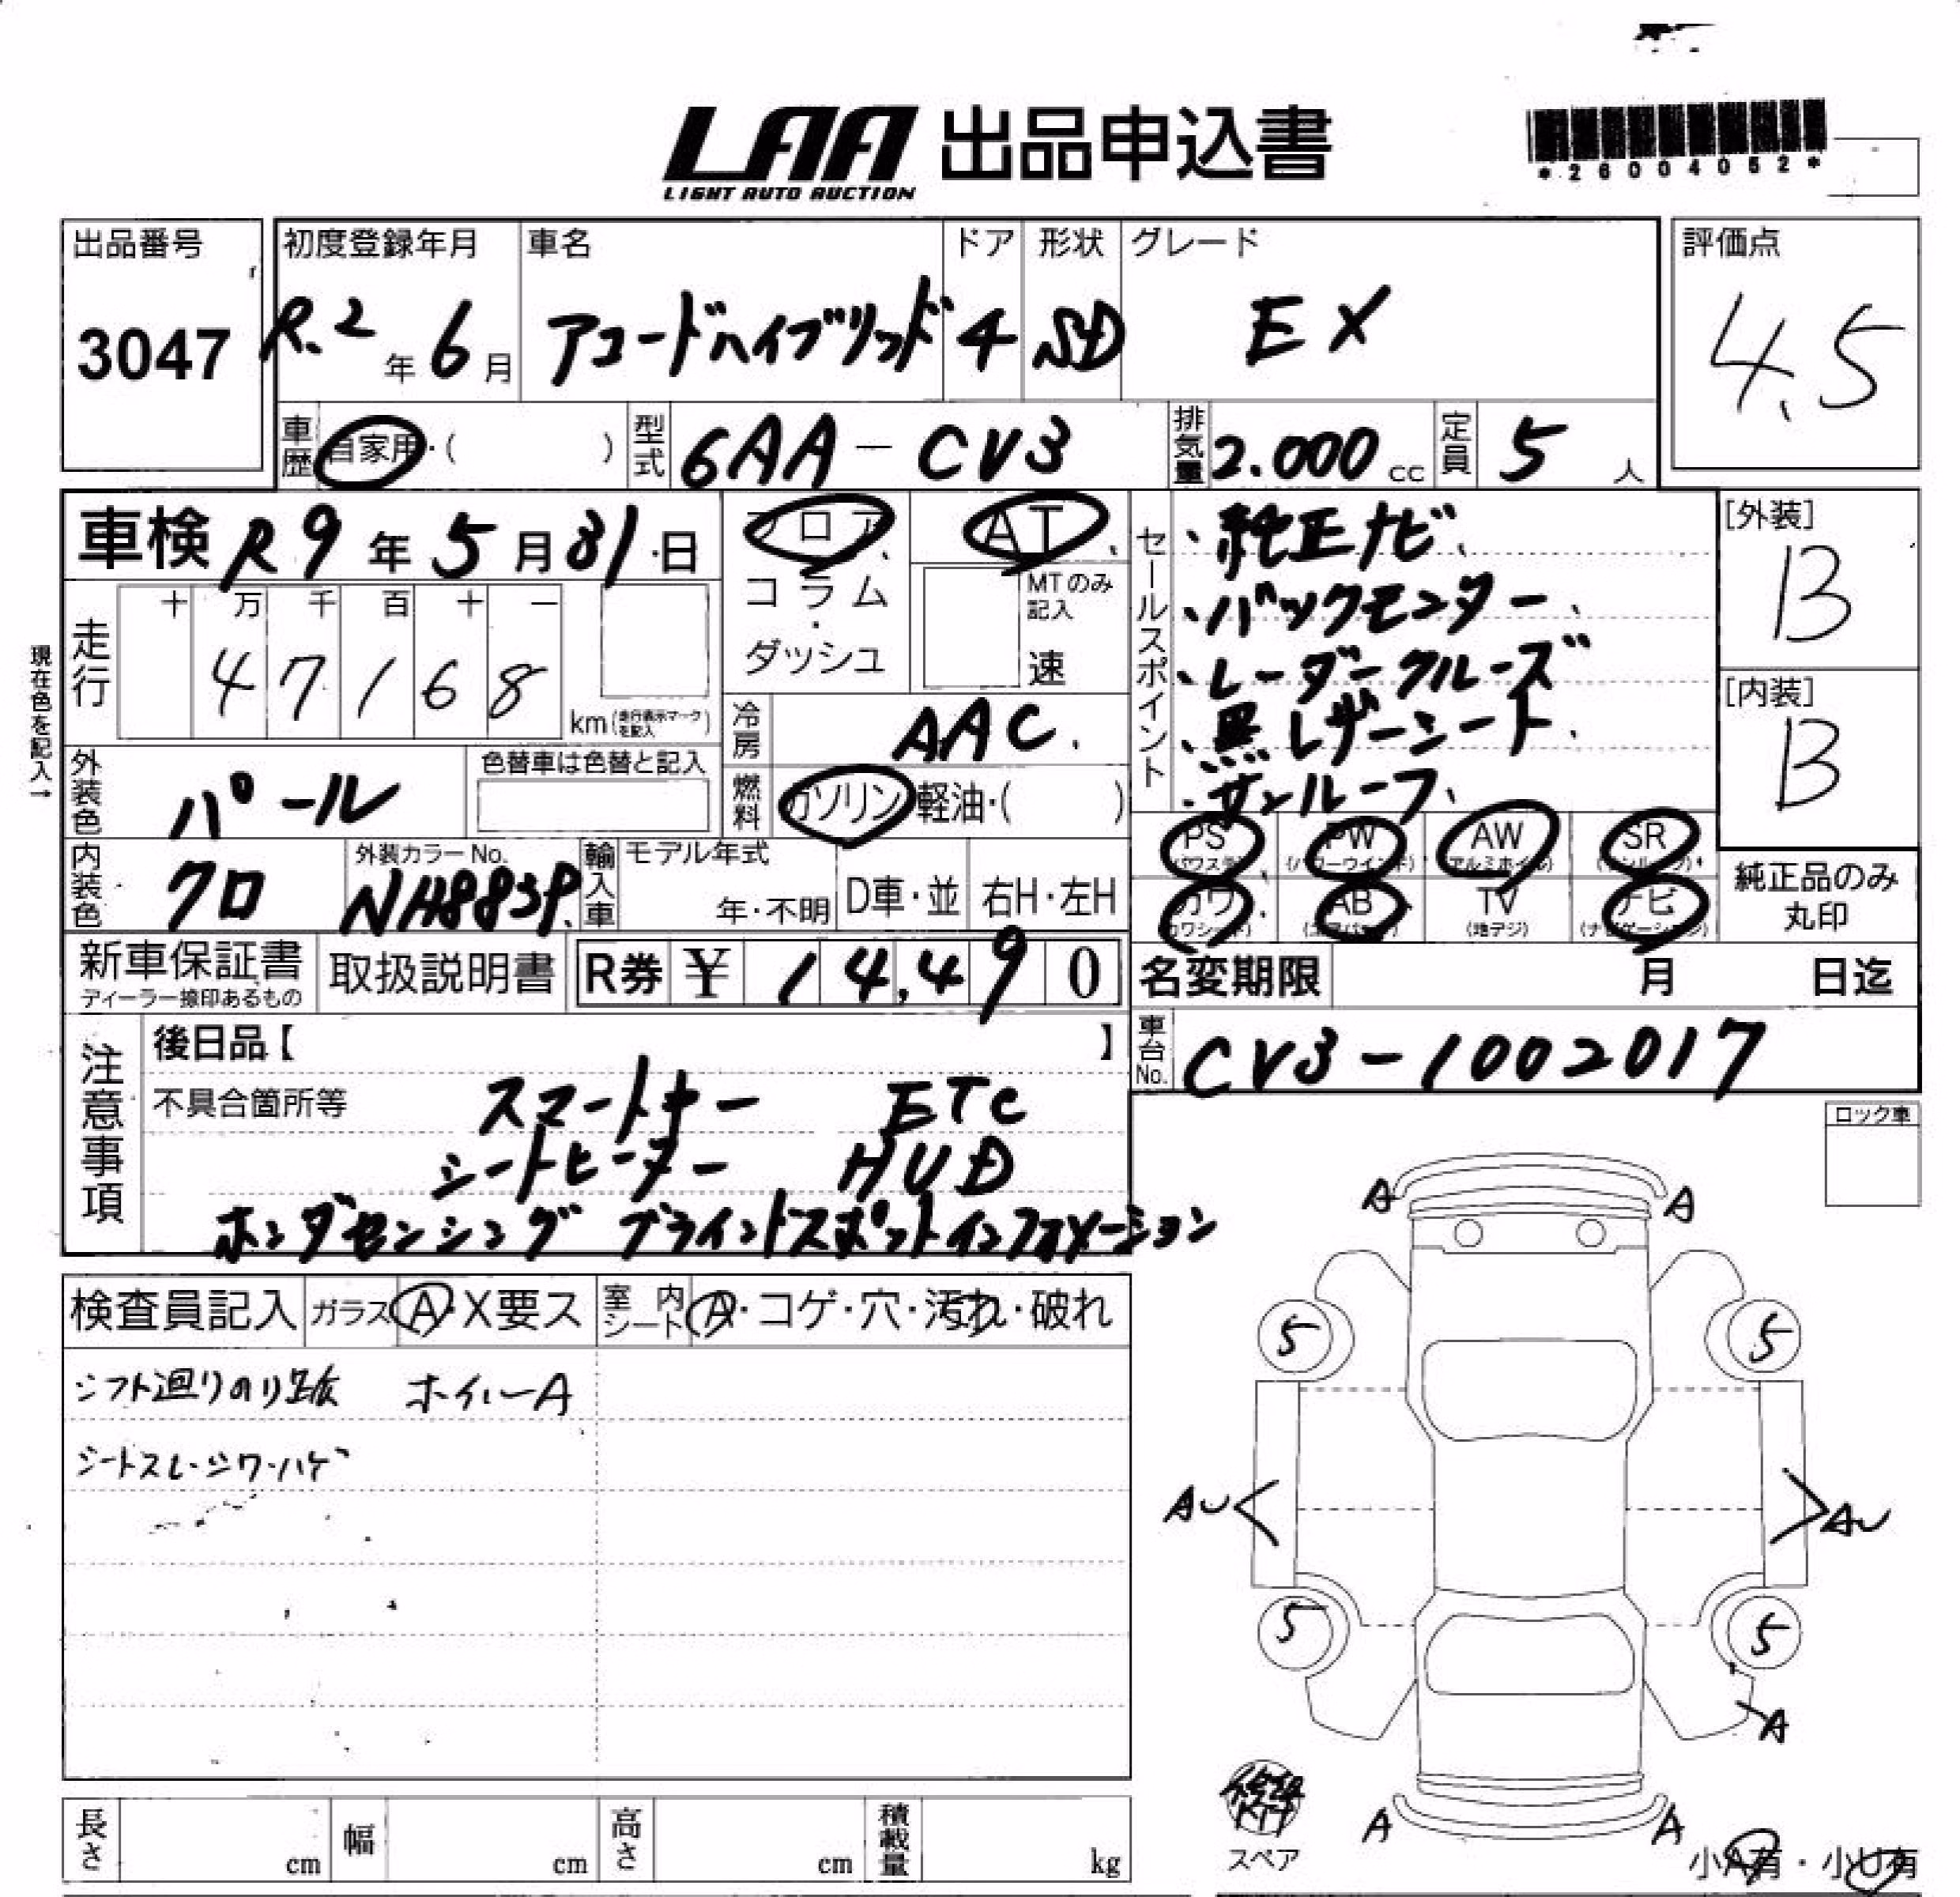 LAA 出品申込書
LIGHT AUTO AUCTION
*26004052*
出品番号
3047
初度登録年月 車名 ドア 形状 グレード
R.2年 6月 アコードハイブリッド 4 SD EX
評価点
4.5
車歴 自家用・( ) 型式 6AA-CV3 排気量 2.000cc 定員 5人
車検 R9年5月31日
フロア
コラム・
ダッシュ
AT
MTのみ記入
速
セールスポイント
・純正ナビ
・バックモニター
・レーダークルーズ
・黒レザーシート
・サンルーフ
[外装]
B
[内装]
B
現在色を記入→
走行 十 万 千 百 十 一
4 7 1 6 8 km(走行表示マークを記入)
冷房 AAC
燃料 ガソリン 軽油・( )
外装色 パール 色替車は色替と記入
内装色 クロ 外装カラーNo. NH883P
輸入車 モデル年式 年・不明 D車・並 右H・左H
PS(パワステ) PW(パワーウインド) AW(アルミホイル) SR(サンルーフ)
カワ(カワシート) AB(エアバック) TV(地デジ) ナビ(ナビゲーション)
純正品のみ
丸印
新車保証書
ディーラー捺印あるもの
取扱説明書 R券 ¥ 14,490
名変期限 月 日迄
車台No. CV3-1002017
注意事項
後日品【 】
不具合箇所等 スマートキー ETC
シートヒーター HUD
ホンダセンシング ブラインドスポットインフォメーション
ロック車
検査員記入 ガラス A・X要ス 室内シート A・コゲ・穴・汚れ・破れ
シフト廻りのり跡 ホイルーA
シートスレ・シワ・ハゲ
A A
5 5
AU AU
5 5
A
A A
スペア
小A有・小U有
長さ cm 幅 cm 高さ cm 積載量 kg